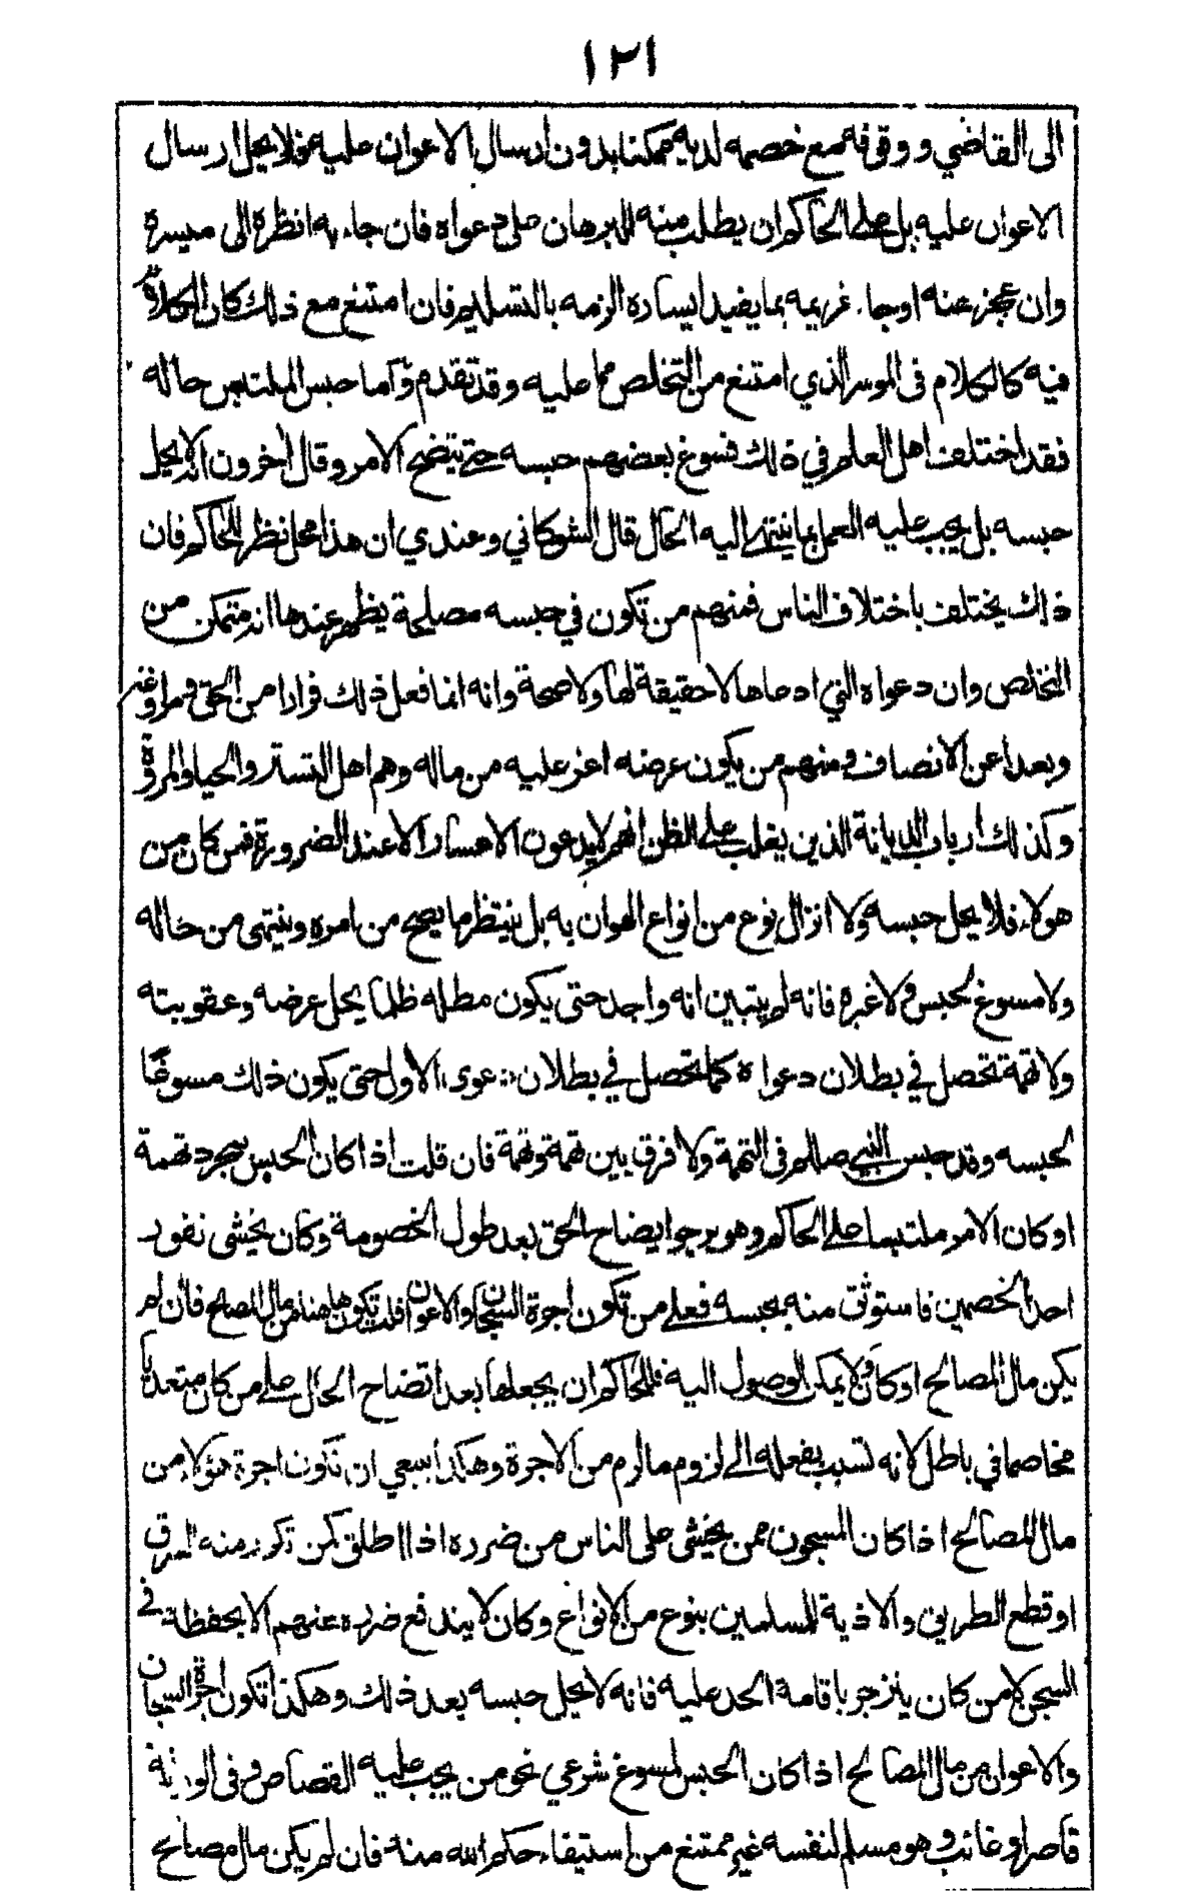 ١٢١
الى القاضي ووقوفه مع خصمه لديه ممكنا بدون ارسال الاعوان عليه فلا يحل ارسال
الاعوان عليه بل على الحاكم ان يطلب منه البرهان على دعواه فان جاء به انظره الى ميسرة
وان عجز عنه او جاء غريمه بما يفيد ايساره الزمه بالتسليم فان امتنع مع ذلك كان الكلام
فيه كالكلام فى الموسر الذي امتنع من التخلص مما عليه وقد تقدم واما حبس الملتبس حاله
فقد اختلف اهل العلم في ذلك فسوغ بعضهم حبسه حتى يتضح الامر وقال اخرون انه لا يحل
حبسه بل يجب عليه العمل بما ينتهي اليه الحال قال الشوكاني وعندي ان هذا محل نظر للحاكم فان
ذلك يختلف باختلاف الناس فمنهم من تكون في حبسه مصلحة يظهر عندها انه متمكن من
التخلص وان دعواه التي ادعاها لا حقيقة لها ولا صحة وانه انما فعل ذلك فرارا من الحق ومراوغة
وبعدا عن الانصاف ومنهم من يكون عرضه اعز عليه من ماله وهم اهل التستر والحياء والمروة
وكذلك ارباب الديانة الذين يغلب على الظن انهم لا يدعون الاعسار الا عند الضرورة فمن كان من
هولاء فلا يحل حبسه ولا انزال نوع من انواع الهوان به بل ينتظر ما يصح من امره وينتهى من حاله
ولا مسوغ لحبس ولا غيره فانه لم يتبين انه واجد حتى يكون مطله ظلما يحل عرضه وعقوبته
ولا تهمة تحصل في بطلان دعواه كما تحصل في بطلان دعوى الاول حتى يكون ذلك مسوغا
لحبسه وقد حبس النبي صللم فى التهمة ولا فرق بين تهمة وتهمة فان قلت اذا كان الحبس بمجرد تهمة
او كان الامر ملتبسا على الحاكم وهو يرجو ايضاح الحق بعد طول الخصومة وكان يخشى نفور
احد الخصمين فاستوثق منه بحبسه فعلى من تكون اجرة السجان والاعوان قلت تكون ههنا من مال المصالح فان لم
يكن مال المصالح او كان ولا يمكن الوصول اليه فللحاكم ان يجعلها بعد اتضاح الحال على من كان متعديا
مخاصما في باطل لانه تسبب بفعله الى لزوم ما لزم من الاجرة وهكذا ينبغي ان تكون اجرة هؤلاء من
مال المصالح اذا كان المسجون ممن يخشى على الناس من ضرره اذا اطلق كمن تكرر منه السرق
او قطع الطريق والاذية للمسلمين بنوع من الانواع وكان لا يندفع ضرره عنهم الا بحفظه فى
السجن لا من كان ينزجر باقامة الحد عليه فانه لا يحل حبسه بعد ذلك وهكذا تكون اجرة السجان
والاعوان من مال المصالح اذا كان الحبس لمسوغ شرعي نحو من يجب عليه القصاص وفى الورثة
قاصر او غائب وهو مسلم لنفسه غير ممتنع من استيفاء حكم الله منه فان لم يكن مال مصالح